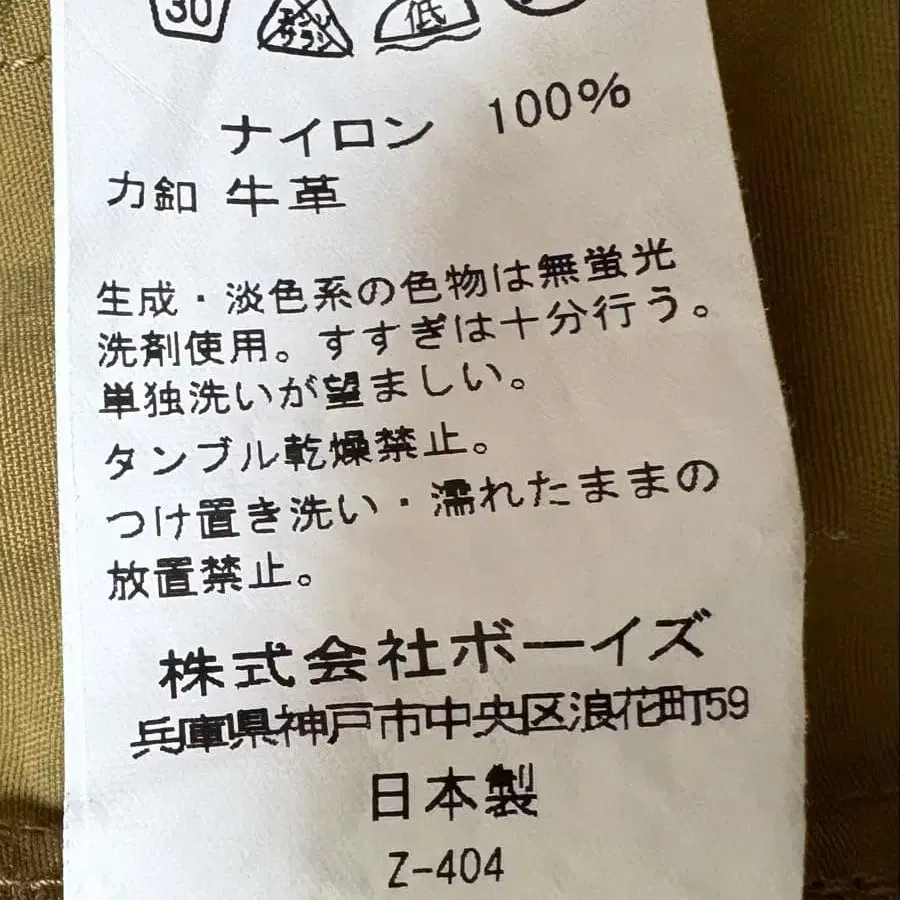 30
エンソ
サラシ
低
ナイロン 100%
力釦 牛革
生成・淡色系の色物は無蛍光
洗剤使用。すすぎは十分行う。
単独洗いが望ましい。
タンブル乾燥禁止。
つけ置き洗い・濡れたままの
放置禁止。
株式会社ボーイズ
兵庫県神戸市中央区浪花町59
日本製
Z-404